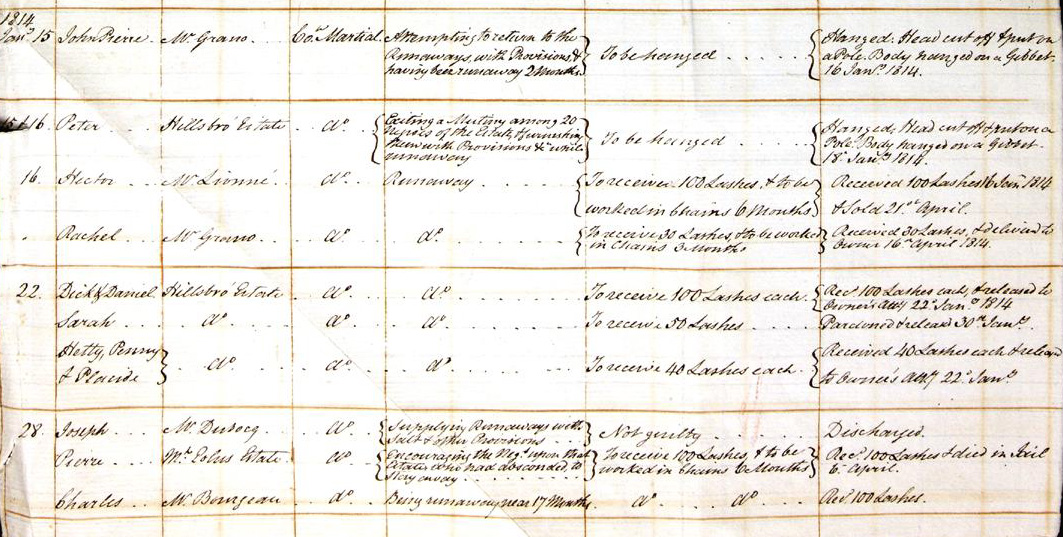 1814
Jany. 15 John Pierre. Mr. Grano. Cot. Martial. Attempting to return to the Runaways, with Provisions, & having been runaway 2 Months To be hanged Hanged. Head cut off & put on a Pole. Body hanged on a Gibbet. 16 Jany. 1814.
15 & 16. Peter Hillsbro' Estate do. Exciting a Mutiny among 20 Negroes of the Estate, & furnishing them with Provisions &c while runaway To be hanged Hanged, Head cut off & put on a Pole. Body hanged on a Gibbet. 18. Jany. 1814.
16. Hector Mr. Lionné do. Runaway To receive 100 Lashes, & to be worked in Chains 6 Months Received 100 Lashes 16 Jany. 1814 & Sold 21st April.
Rachel Mr. Grano do. do. To receive 30 Lashes, & to be worked in Chains 3 Months Received 30 Lashes, & delivered to Owner 16th April 1814.
22. Dick & Daniel Hillsbro' Estate do. do. To receive 100 Lashes each. Recd. 100 Lashes each, & released to Owner's Atty 22d Jany. 1814
Sarah do. do. do. To receive 50 Lashes Pardoned & releasd 30th Jany.
Hetty, Penny & Placide do. do. do. To receive 40 Lashes each. Received 40 Lashes each & releasd to Owner's Atty 22d Jany.
28. Joseph Mr. Durocq do. Supplying Runaways with Salt & other Provisions Not guilty Discharged.
Pierre Mt. Eolus Estate do. Encouraging the Negs. upon that Estate who had absconded, to stay away To receive 100 Lashes, & to be worked in Chains 6 Months Recd. 100 Lashes & died in Jail 6. April.
Charles Mr. Bourgeau do. Being runaway near 17 Months do. do. Recd. 100 Lashes.